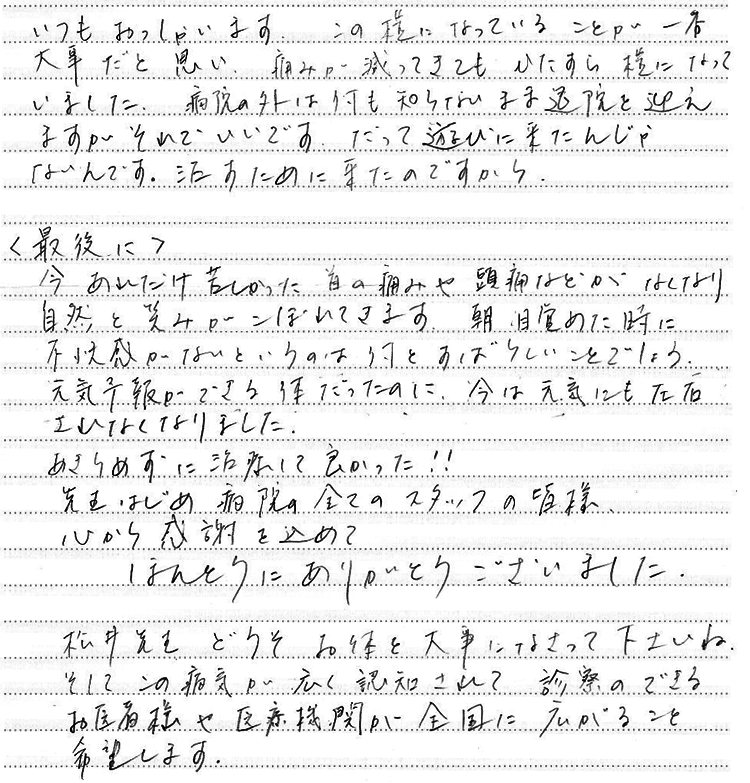 いつもおっしゃいます。この様になっていることが一番
大事だと思い、痛みが減ってきてもひたすら横になって
いました。病院の外は何も知らないまま退院を迎え
ますがそれでいいです。だって遊びに来たんじゃ
ないんです。治すために来たのですから。
<最後に>
今あれだけ苦しかった首の痛みや頭痛などがなくなり
自然と笑みがこぼれてきます。朝目覚めた時に
不快感がないというのは何とすばらしいことでしょう。
天気予報ができる体だったのに、今は天気にも左右
されなくなりました。
あきらめずに治療して良かった!!
先生はじめ病院の全てのスタッフの皆様、
心から感謝を込めて
ほんとうにありがとうございました。
松井先生どうぞお体を大事になさって下さいね。
そしてこの病気が広く認知されて診察のできる
お医者様や医療機関が全国に広がること
希望します。